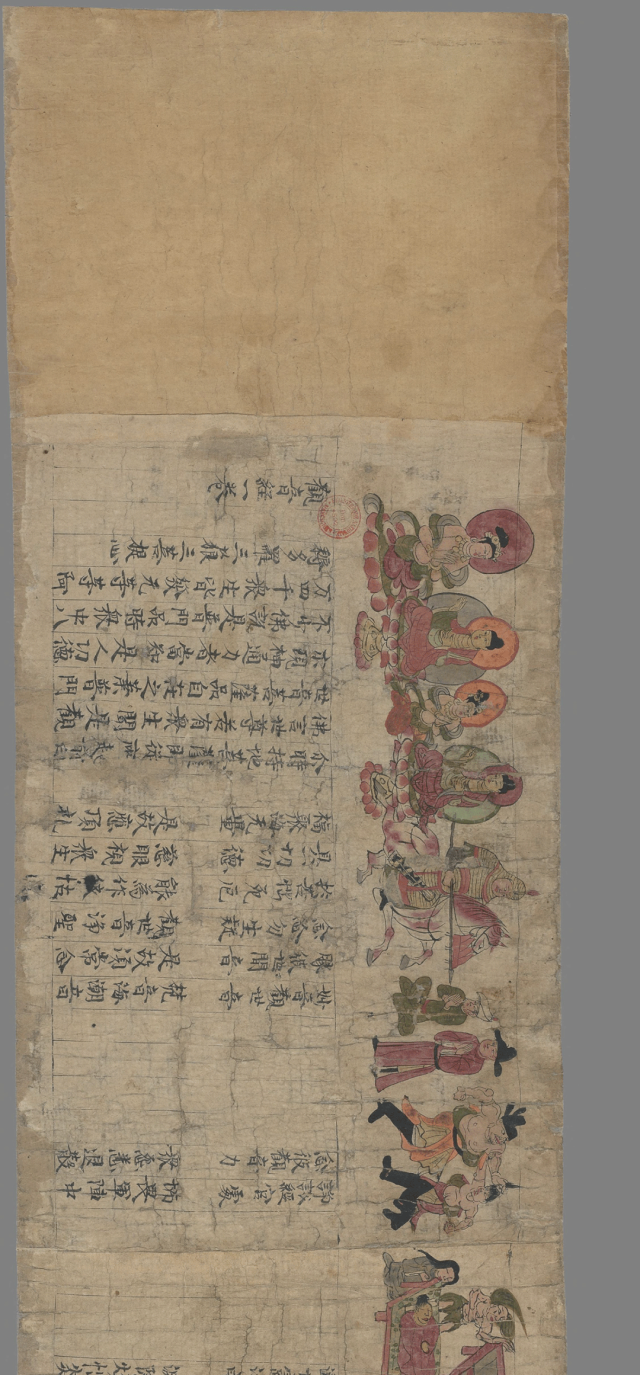 諍訟經官處 怖畏軍陣中
念彼觀音力 衆怨悉退散
妙音觀世音 梵音海潮音
勝彼世間音 是故須常念
念念勿生疑 觀世音淨聖
於苦惱死厄 能爲作依怙
具一切功德 慈眼視衆生
福聚海无量 是故應頂礼
尒時持地菩薩即從座起前白
佛言世尊若有衆生聞是觀
世音菩薩品自在之業普門
示現神通力者當知是人功德
不少佛說是普門品時衆中八
万四千衆生皆發无等等阿
耨多羅三藐三菩提心
觀音經一卷